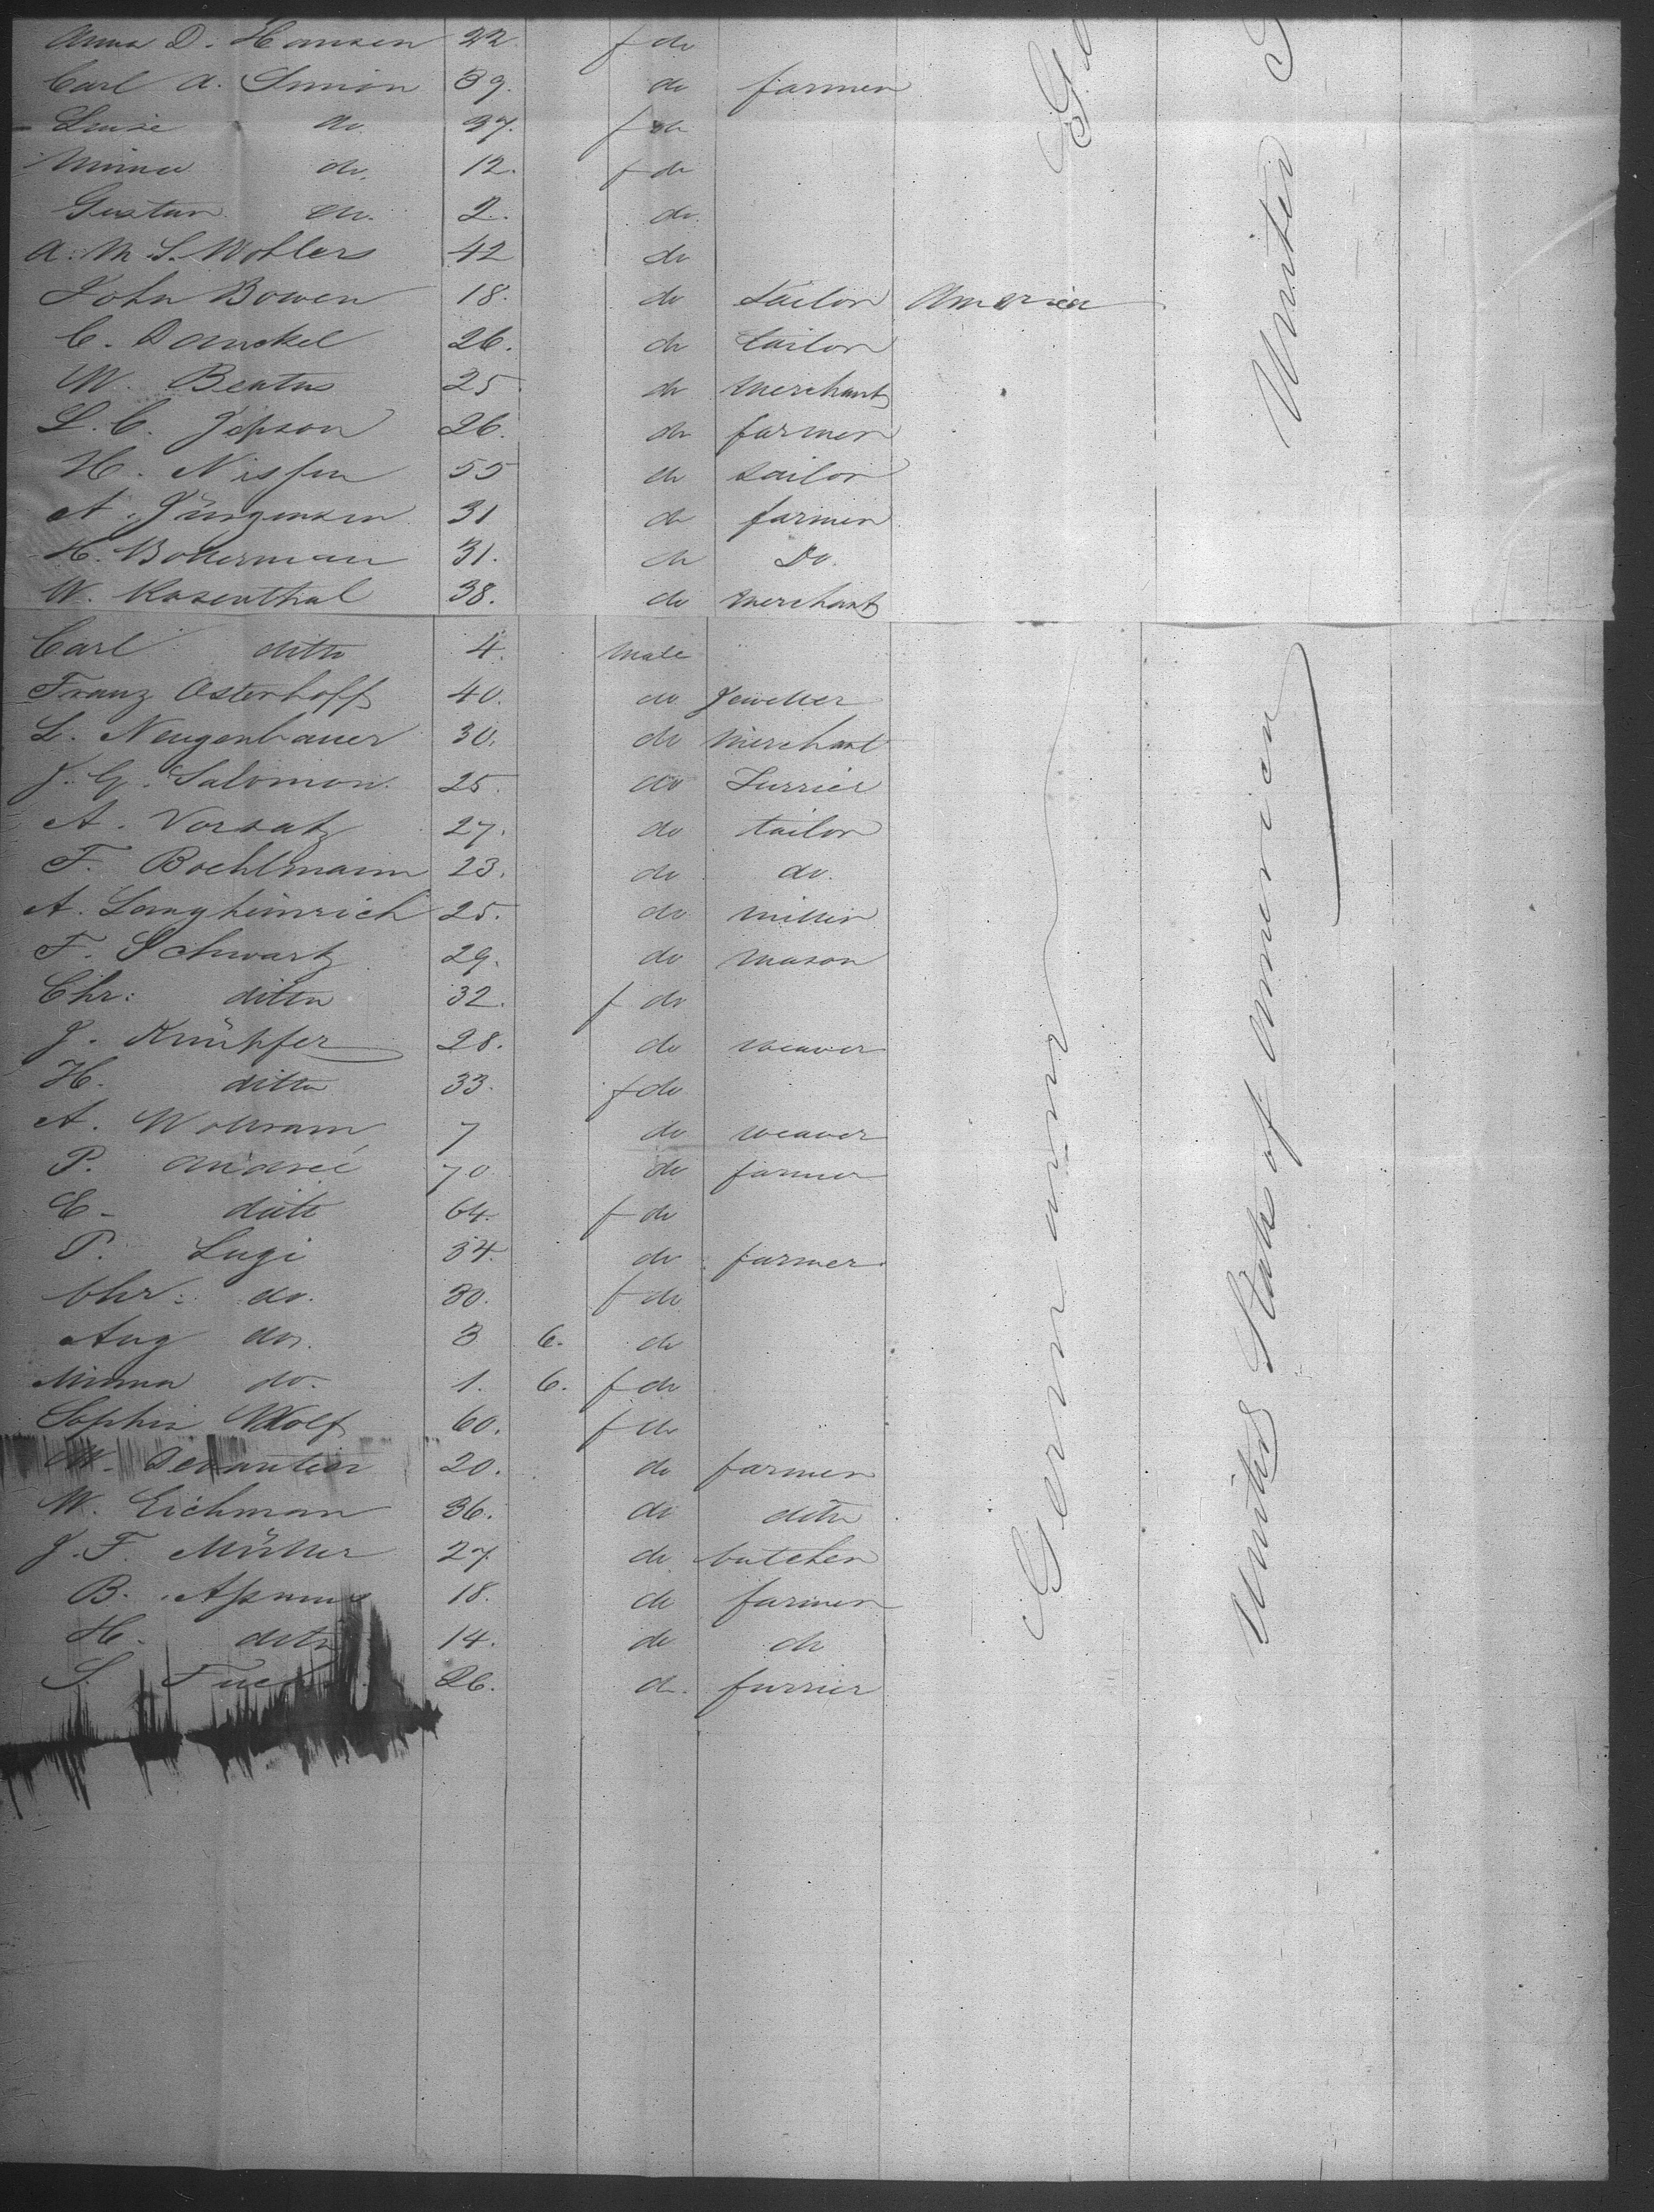 Anna D. Hansen 22 f do
Carl A. Simon 39. do farmer
Luise do. 37. f do
Minna do. 12. f do
Gustav do. 2. do.
A. M. S. Wohlers 42 do
John Bowen 18. do Sailor America
C. Danckel 26. do tailor
W. Beatus 25. do merchant
L. C. Jepson 26. do farmer
H. Nissen 55 do sailor
A. Jürgensen 31 do farmer
H. Bollerman 31. do Do.
W. Rosenthal 38. do merchant
Carl ditto 4. male
Franz Osterhoff 40. do Jeweller
L. Neugenbauer 30. do Merchant
J. G. Salomon. 25. do Furrier
A. Vorsatz 27. do tailor
F. Boehlmann 23. do do.
A. Langheinrich 25. do miller
F. Schwartz 29. do mason
Chr: ditto 32. f do
J. Knüpfer 28. do weaver
H. ditto 33. f do
A. Wollram 7 do weaver
P. Andreé 70 do farmer
E. ditto 64. f do
P. Lugi 34. do farmer
Chr: do. 30. f do
Aug do. 3 6. do
Minna do. 1. 6. f do
Sophia Wolf 60. f do
W. 20. do farmer
W. Eichman 36. do ditto
J. F. Müller 27. do butcher
B. Assmus 18. do farmer
H. ditto 14. do do
S. 26. do. furrier
Germany
United
United States of America